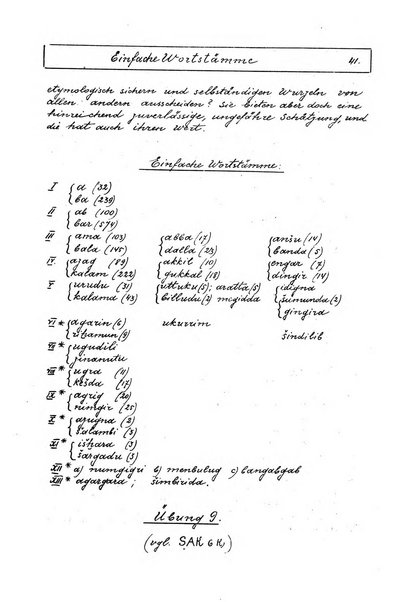 Einfache Wortstämme 41.
etymologisch sichern und selbständigen Wurzeln von
allen andern ausscheiden? Sie bieten aber doch eine
hinreichend zuverlässige, ungefähre Schätzung, und
die hat auch ihren Wert.
Einfache Wortstämme:
I { a (32)
ba (239)
II { ab (100)
bar (574)
III { ama (103) { abba (17) { anšu (14)
bala (145) dalla (23) banda (5)
IV { azag (89) { akkil (10) { engar (7)
kalam (222) gukkal (18) dingir (14)
V { urudu (31) { uttuku (5); aratta (5) { idigna
kalama (43) billudu (2) mugidda šumunda (2)
gingira
VI * { agarin (6) ukurrim
šindilib
VII * { ugudil
VIII * { ugra (11)
kešda (17)
IX * { agrig (20)
nimgir (25)
X * { (2)
šalambi (3)
XI * { išhara (3)
šargadu (3)
XII * a) numgigri b) menbulug c) langabgab
XIII * agargara; šimbizida.
Übung 9.
(vgl. SAK 6 K)